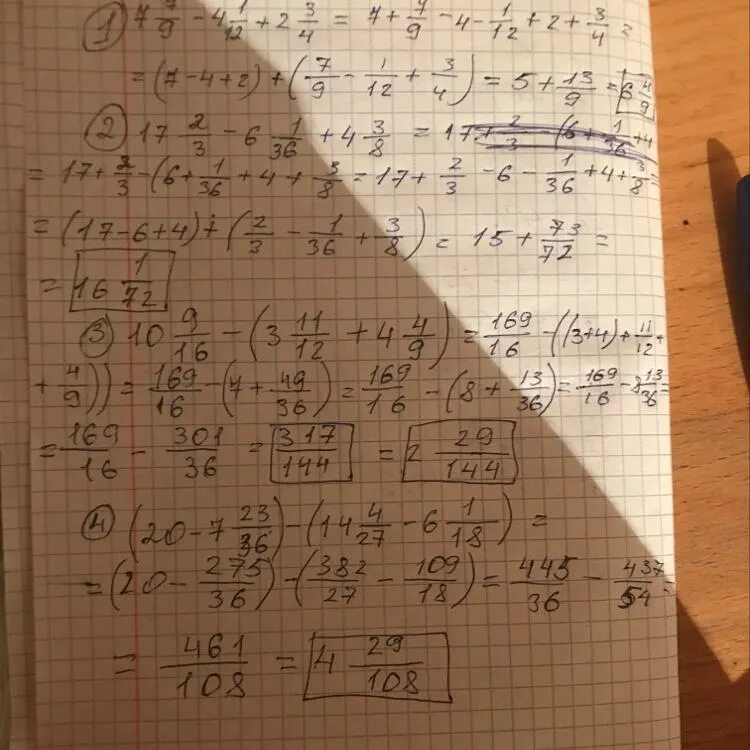 ① 7 7/9 - 4 1/12 + 2 3/4 = 7 + 7/9 - 4 - 1/12 + 2 + 3/4 =
= (7 - 4 + 2) + (7/9 - 1/12 + 3/4) = 5 + 13/9 = 6 4/9
② 17 2/3 - 6 1/36 + 4 3/8 = 17 + 2/3 - (6 + 1/36 + 4
= 17 + 2/3 - (6 + 1/36 + 4 + 3/8 = 17 + 2/3 - 6 - 1/36 + 4 + 3/8 =
= (17 - 6 + 4) + (2/3 - 1/36 + 3/8) = 15 + 73/72 =
= 16 1/72
③ 10 9/16 - (3 11/12 + 4 4/9) = 169/16 - ((3+4) + 11/12 +
+ 4/9)) = 169/16 - (7 + 49/36) = 169/16 - (8 + 13/36) = 169/16 - 8 13/36 =
= 169/16 - 301/36 = 317/144 = 2 29/144
④ (20 - 7 23/36) - (14 4/27 - 6 1/18) =
= (20 - 275/36) - (382/27 - 109/18) = 445/36 - 437/54 =
= 461/108 = 4 29/108